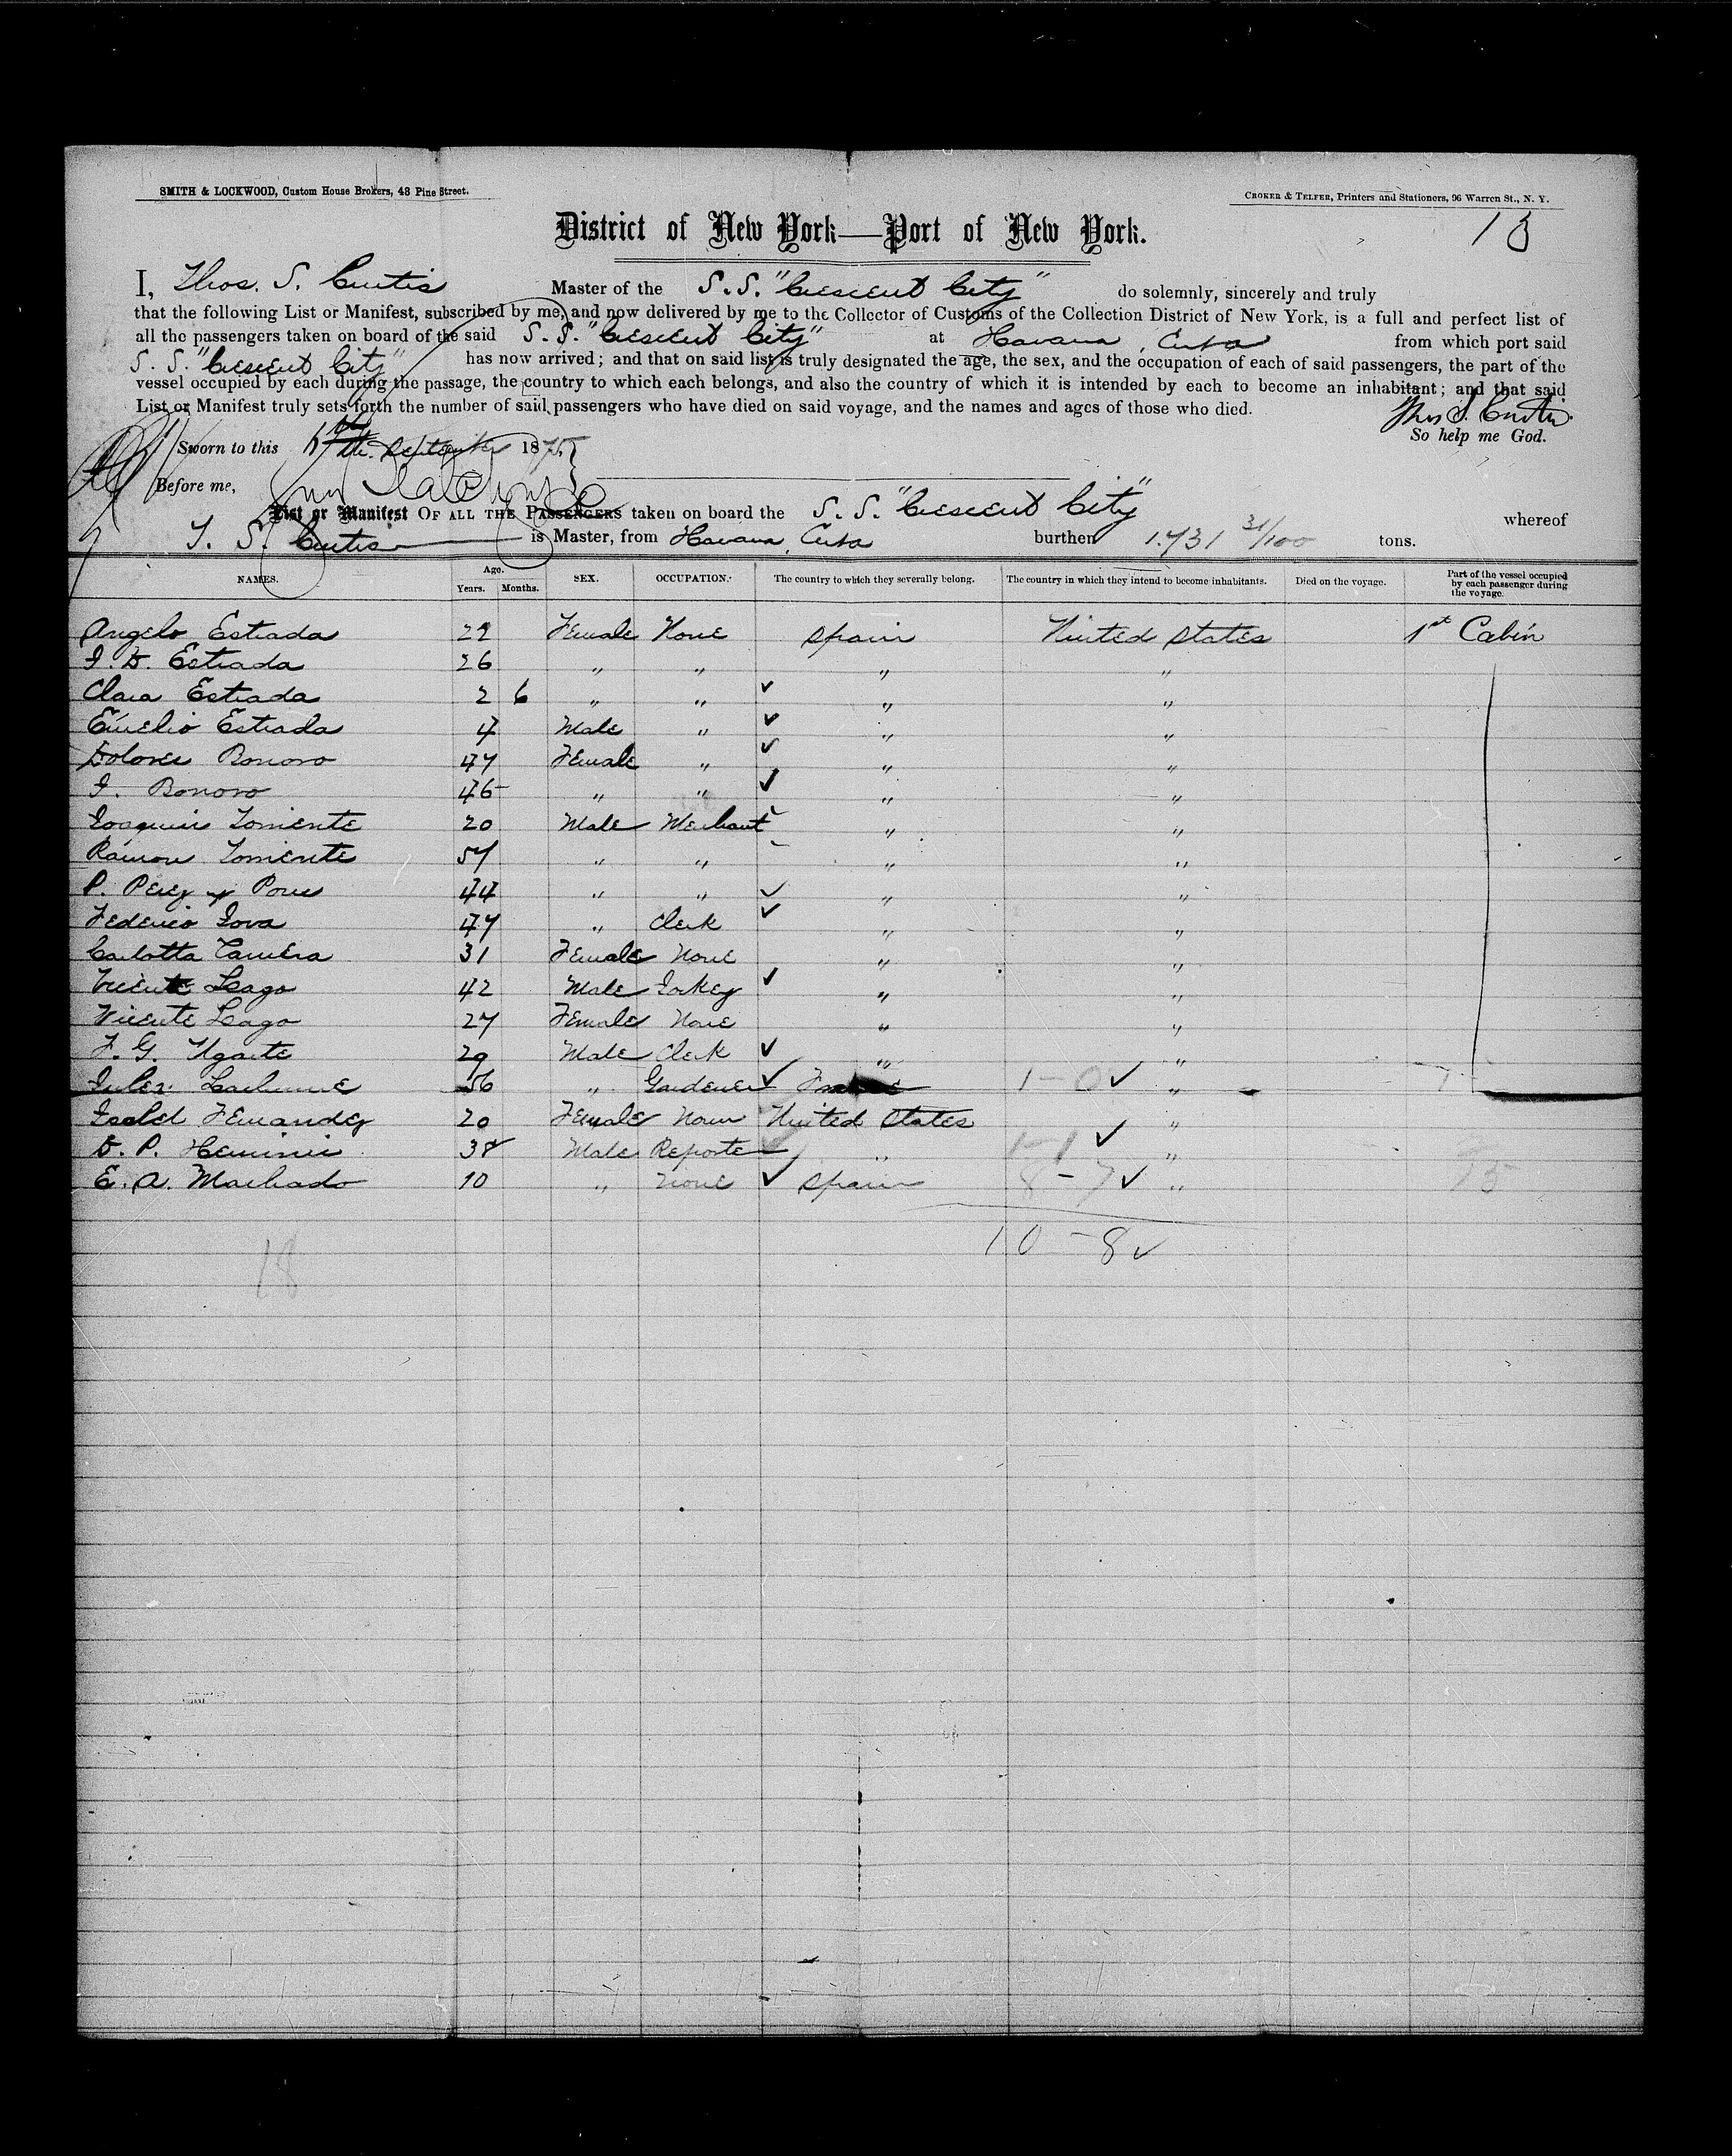 SMITH & LOCKWOOD, Custom House Brokers, 48 Pine Street.
CROKER & TELFER, Printers and Stationers, 96 Warren St., N. Y.
District of New York—Port of New York.
I, Thos. S. Curtis Master of the S.S. "Crescent City" do solemnly, sincerely and truly
that the following List or Manifest, subscribed by me, and now delivered by me to the Collector of Customs of the Collection District of New York, is a full and perfect list of
all the passengers taken on board of the said S. S. "Crescent City" at Havana, Cuba from which port said
S. S. "Crescent City" has now arrived; and that on said list is truly designated the age, the sex, and the occupation of each of said passengers, the part of the
vessel occupied by each during the passage, the country to which each belongs, and also the country of which it is intended by each to become an inhabitant; and that said
List or Manifest truly sets forth the number of said passengers who have died on said voyage, and the names and ages of those who died.
Thos S. Curtis
So help me God.
Sworn to this September 1875
Before me,
List or Manifest OF ALL THE PASSENGERS taken on board the S. S. "Crescent City" whereof
T. S. Curtis is Master, from Havana, Cuba burthen 1.731 31/100 tons.
NAMES. Age. Years. Months. SEX. OCCUPATION. The country to which they severally belong. The country in which they intend to become inhabitants. Died on the voyage. Part of the vessel occupied by each passenger during the voyage.
Angelo Estrada 22 Female None Spain United States 1st Cabin
F. D. Estrada 26 " " " "
Clara Estrada 2 6 " " " "
Emelio Estrada 4 Male " " "
Dolores Romoro 47 Female " " "
F. Romoro 46 " " " "
Joaquin Torriente 20 Male Merchant " "
Ramon Torriente 57 " " " "
P. Perez y Pons 44 " " " "
Federico Jova 47 " Clerk " "
Carlotta 31 Female None " "
Vicente Lago 42 Male Jockey " "
Vicente Lago 27 Female None " "
F. G. Ugarte 29 Male Clerk " "
Jules 56 " Gardener France 1-0 "
Isabel Fernandez 20 Female None United States "
D. P. 38 Male Reporter " 1-1 "
E. A. Machado 10 " None Spain 8-7 " 15
10-8
18